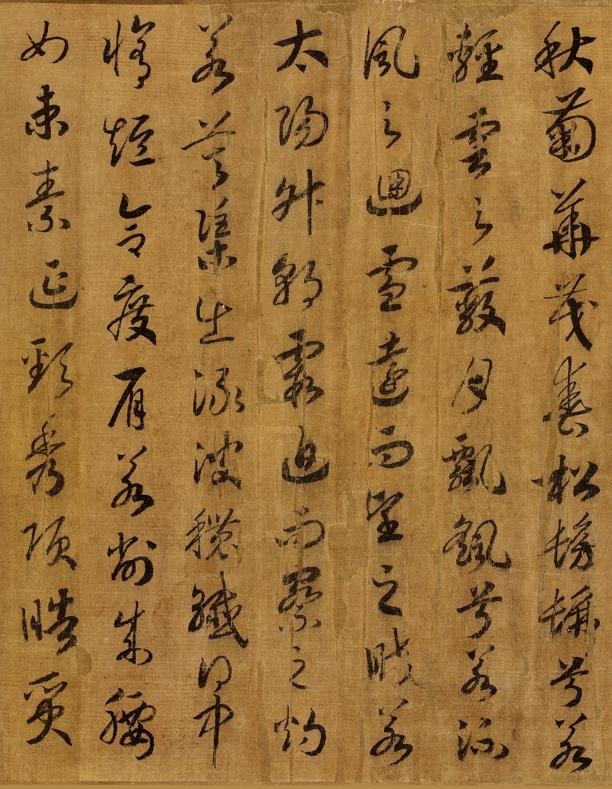 秋菊華茂春松髣髴兮若
輕雲之蔽月飄颻兮若流
風之迴雪遠而望之皎若
太陽升朝霞迫而察之灼
若芙蕖出淥波穠纖得中
脩短合度肩若削成腰
如束素延頸秀項皓質